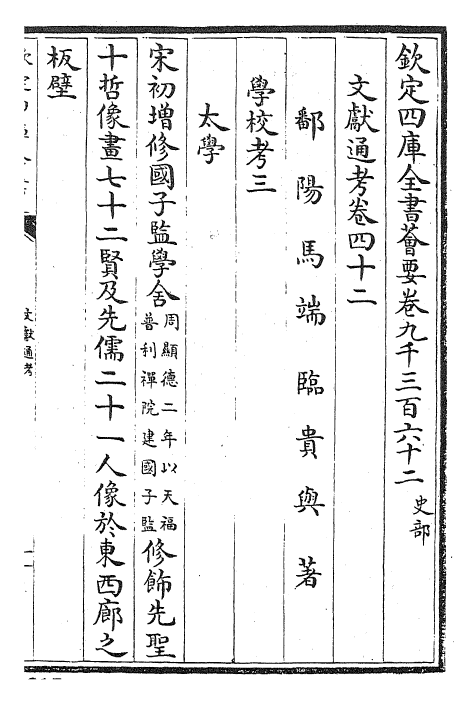 欽定四庫全書薈要卷九千三百六十二史部
文獻通考卷四十二
鄱陽馬端臨貴與著
學校考三
太學
宋初増修國子監學舍周顯德二年以天福普利禪院建國子監修飾先聖
十哲像畫七十二賢及先儒二十一人像於東西廊之
板壁
文獻通考